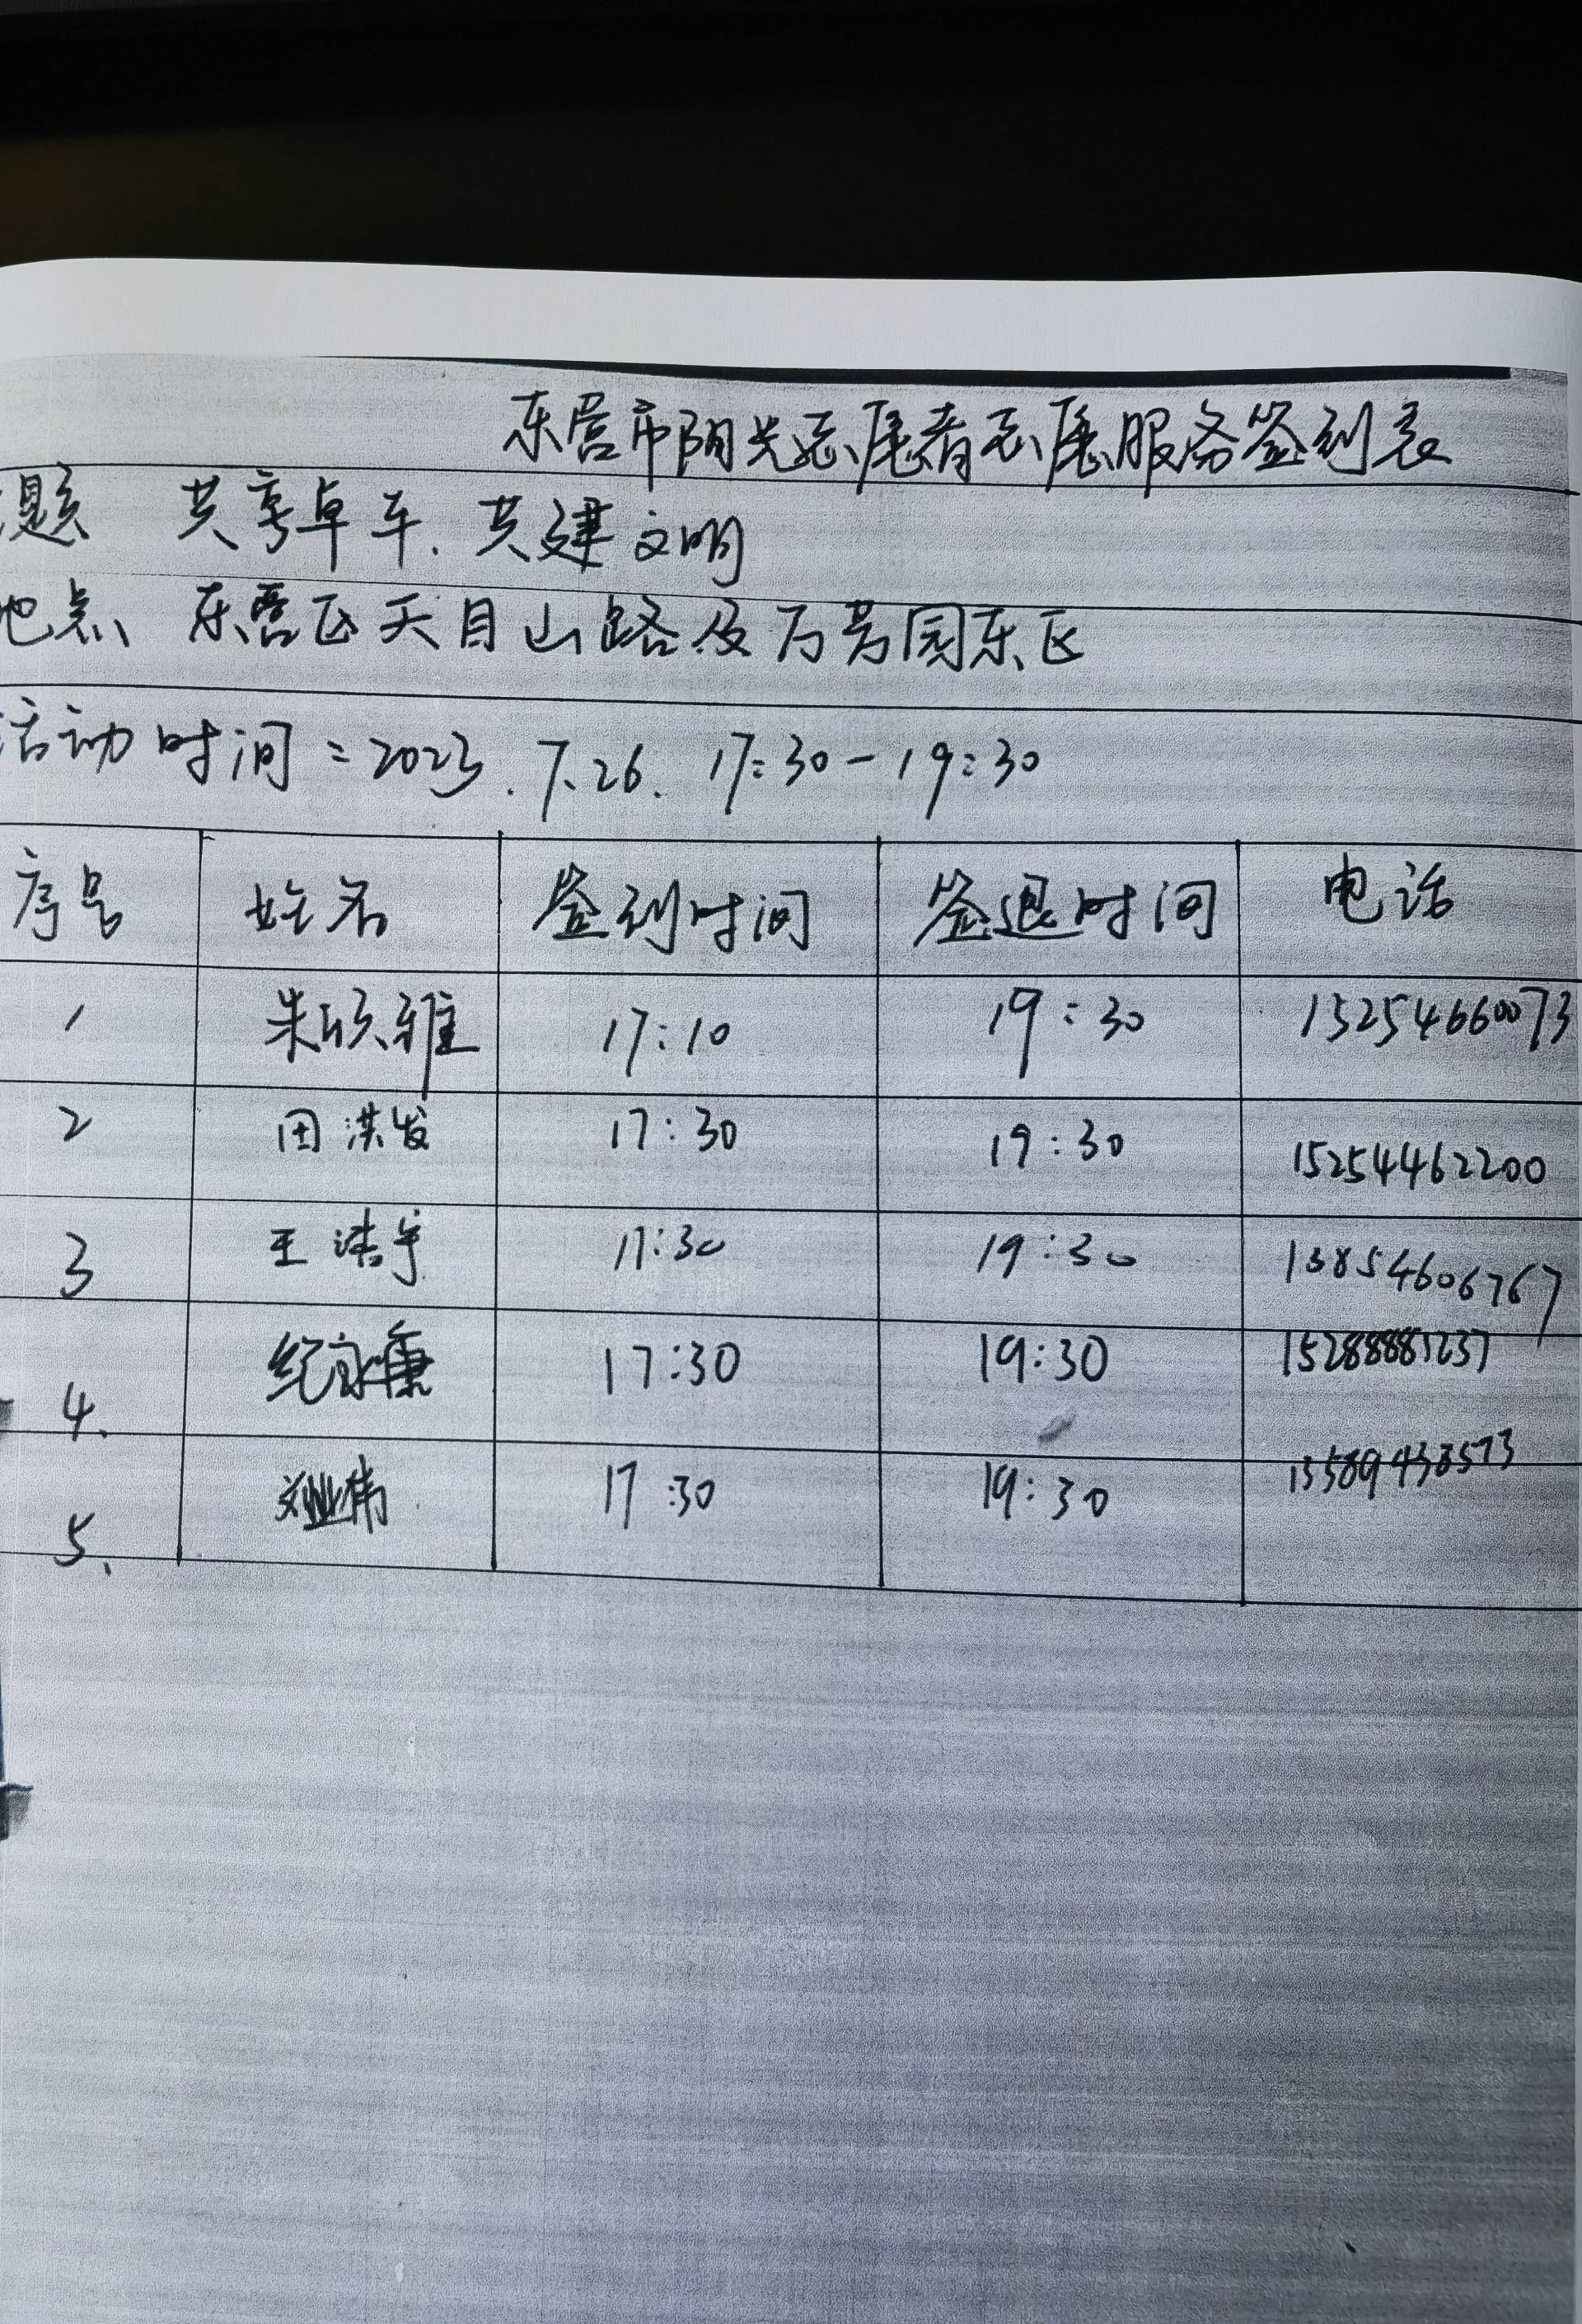 东营市阳光志愿者志愿服务签到表
题 共享单车.共建文明
地点 东营区天目山路及万芳园东区
活动时间:2023.7.26. 17:30-19:30
序号 姓名 签到时间 签退时间 电话
1 朱欣雅 17:10 19:30 15254660073
2 田洪发 17:30 19:30 15254462200
3 王浩宇 17:30 19:30 13854606767
4. 纪永康 17:30 19:30
5. 刘业伟 17:30 19:30